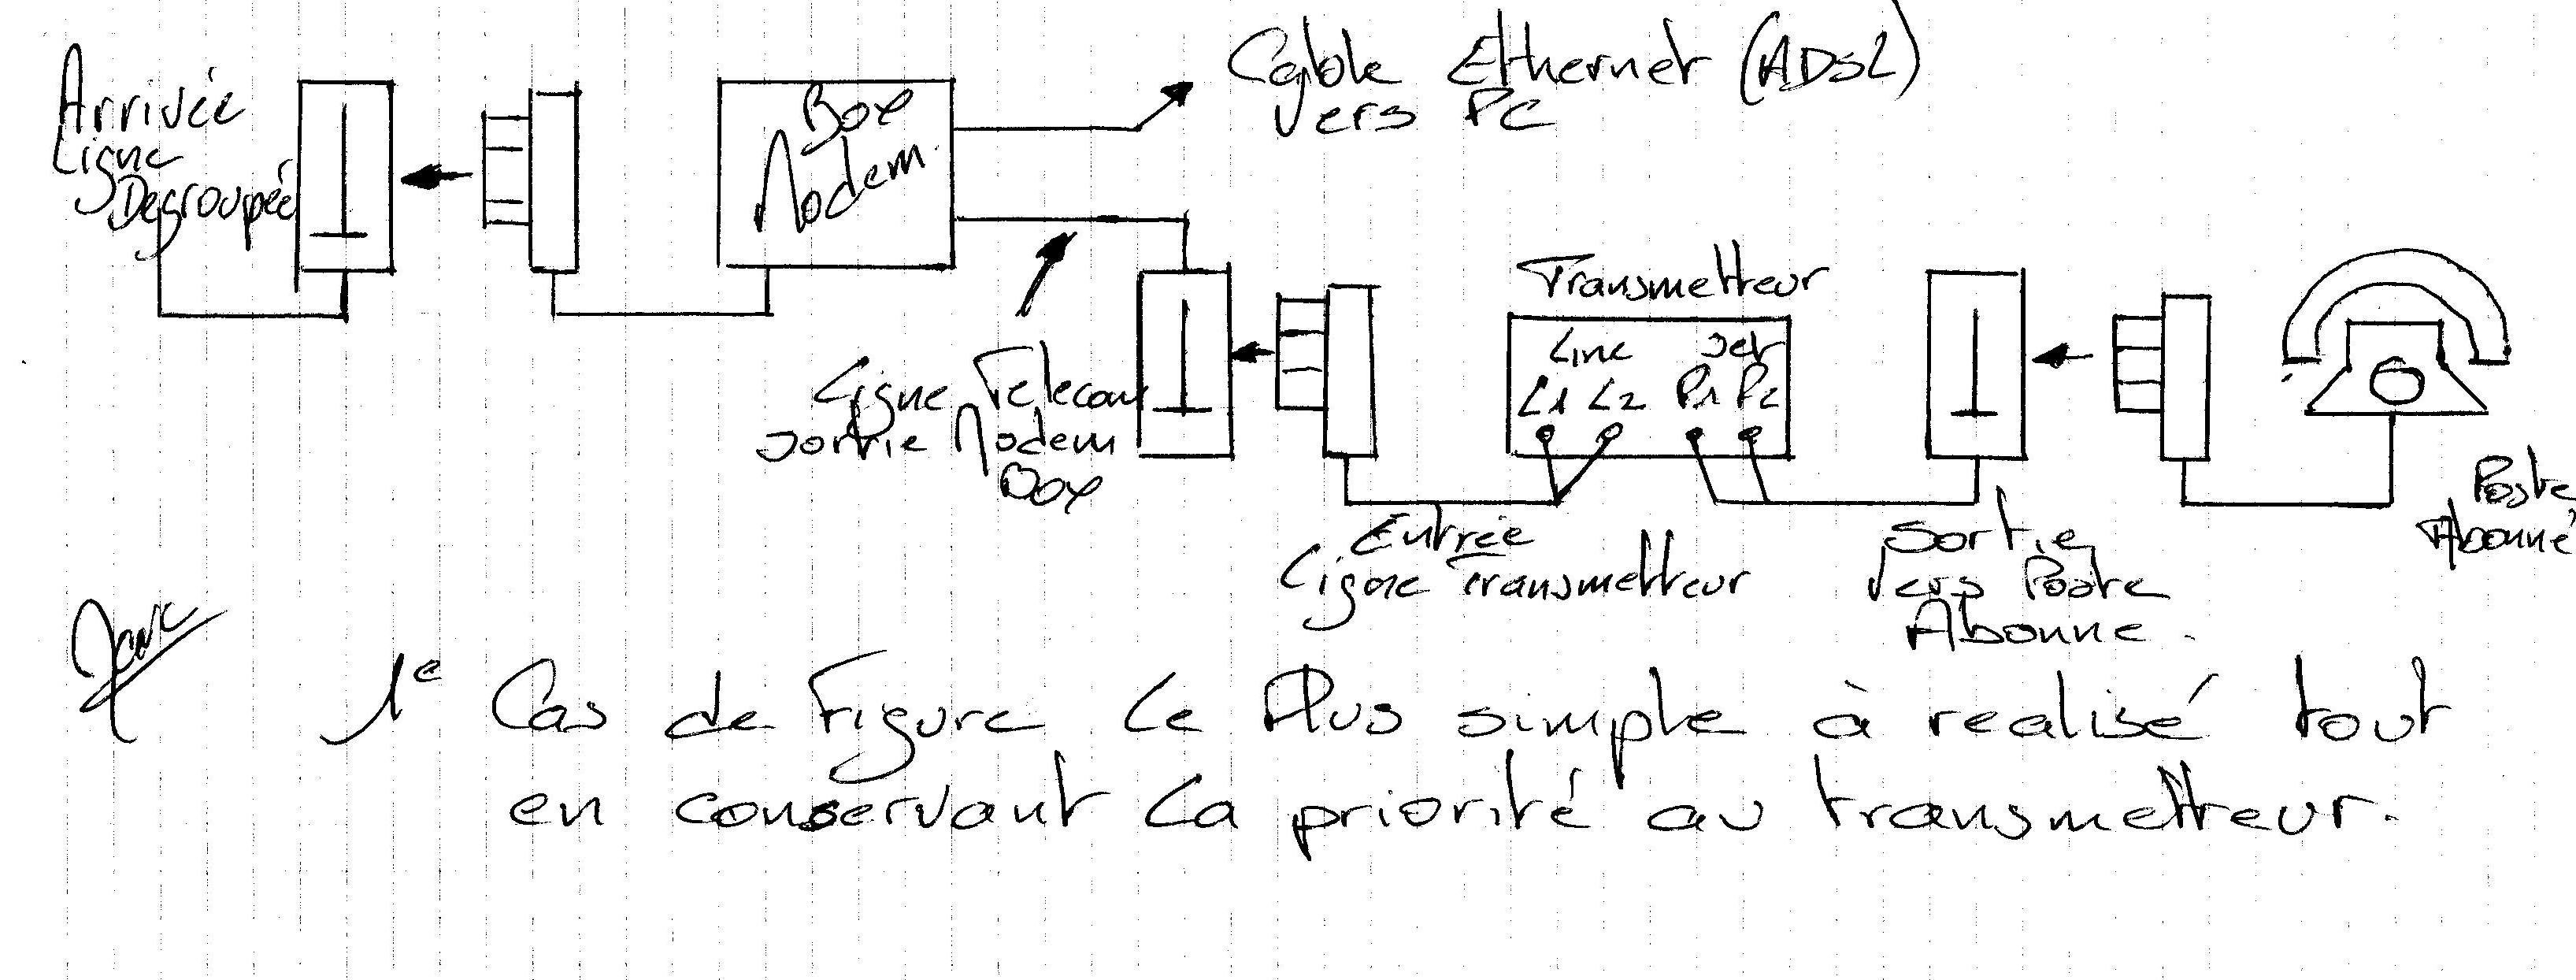 Arrivée
Ligne
Degroupée
Box
Modem.
Cable Ethernet (ADSL)
vers PC
Ligne Telecom
sortie Modem
Box
Transmetteur
Line Set
L1 L2 P1 P2
Entrée
Ligne Transmetteur
Sortie
Vers Poste
Abonne.
Poste
Abonné
1e Cas de Figure Le Plus simple à realisé tout
en conservant La priorité au transmetteur.